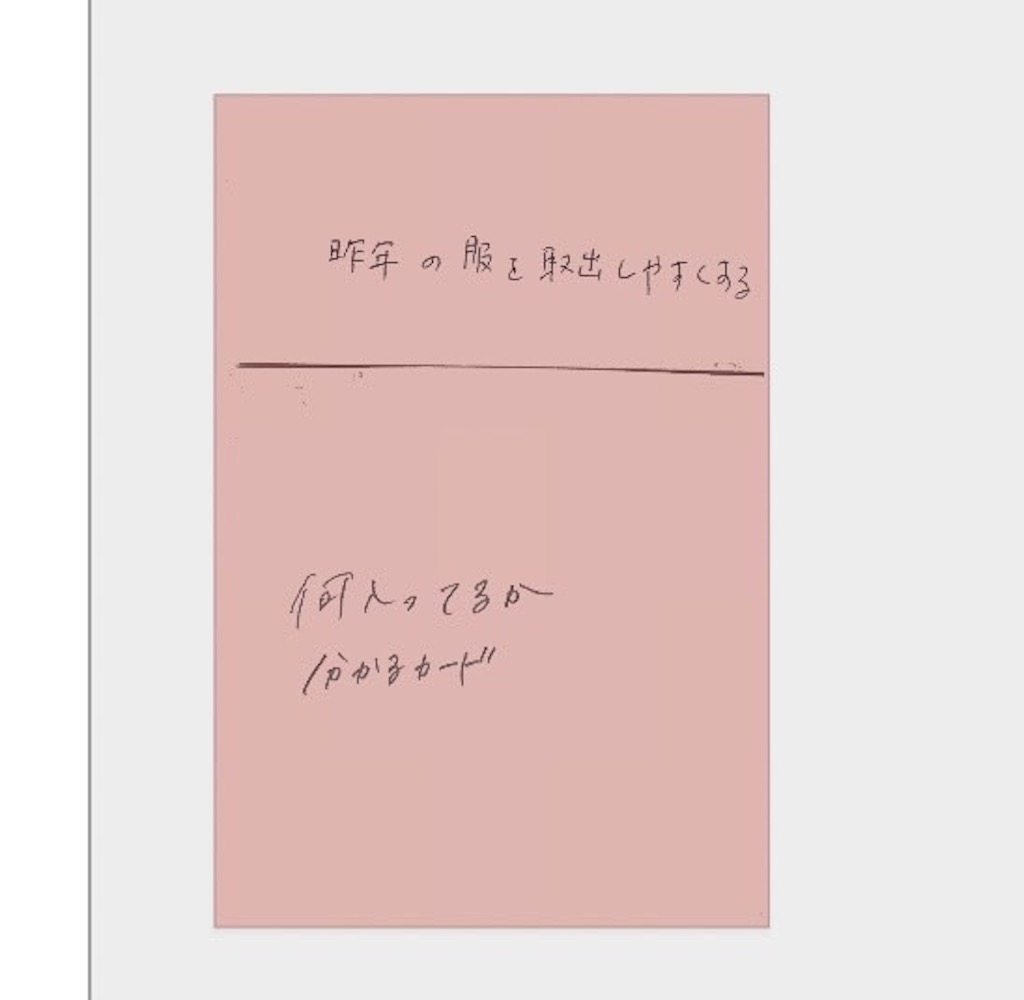 昨年の服を取出しやすくする
何入ってるか
分かるカード